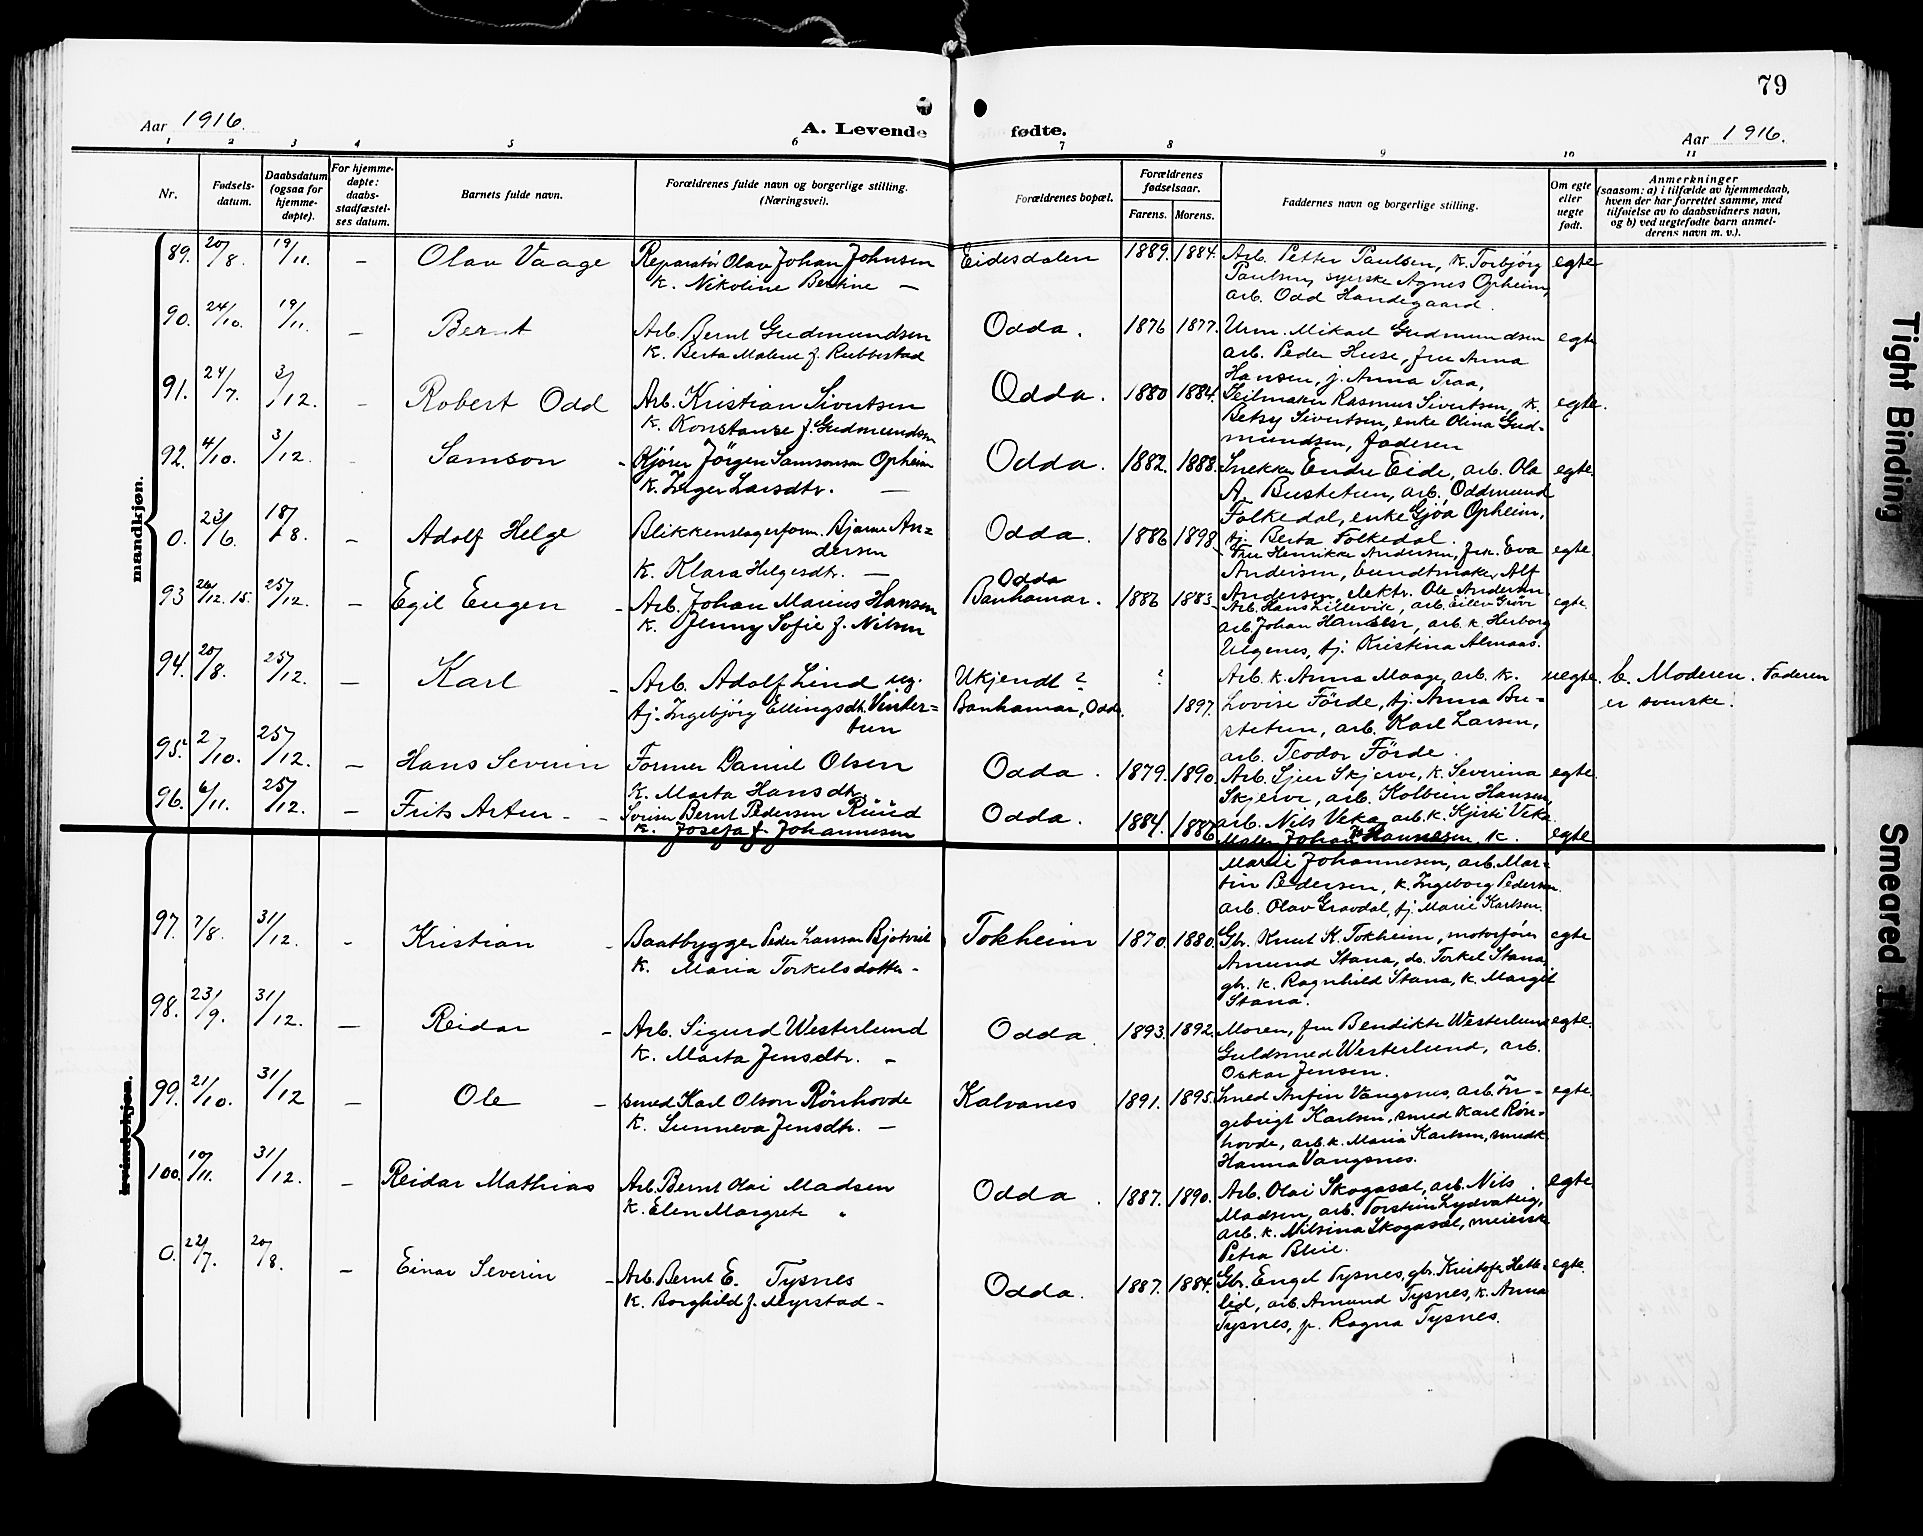 79
Aar 1916.
A. Levende fødte.
Aar 1916.
1 2 3 4 5 6 7 8 9 10 11
Nr.
Fødsels-
datum.
Daabsdatum
(ogsaa for
hjemme-
døpte).
For hjemme-
døpte:
daabs-
stadfæstel-
ses datum.
Barnets fulde navn.
Forældrenes fulde navn og borgerlige stilling.
(Næringsveil).
Forældrenes bopæl.
Forældrenes
fødselsaar.
Farens. Morens.
Faddernes navn og borgerlige stilling.
Om egte
eller
uegte
født.
Anmerkninger
(saasom: a) i tilfælde av hjemmedaab,
hvem der har forrettet samme, med
tilføielse av to daabsvidners navn,
og b) ved uegtefødte barn anmel-
derens navn m. v.).
mandkjøn.
89. 20/8. 19/11. - Olav Vaage
Reparatør Olav Johan Johnsen
k. Nikoline Bertine -
Eidesdalen 1889. 1884.
Arb. Petter Paulsen, k. Torbjørg
Paulsen, syerske Agnes Opheim,
arb. Odd Handegaard.
egte
90. 24/10. 19/11. - Bernt
Arb. Bernt Gudmundsen
k. Berta Malene f. Rubbestad
Odda. 1876 1877.
Urm. Mikael Gudmundsen
arb. Peder Huse, fru Anna
Hansen, j. Anna Traa,
egte
91. 24/7. 3/12. - Robert Odd
Arb. Kristian Sivertsen
k. Konstanse f. Gudmundsen
Odda. 1880 1884.
Seilmaker Rasmus Sivertsen, k.
Betsy Sivertsen, enke Olina Gud-
mundsen, faderen
egte.
92. 4/10. 3/12. - Samson
Kjører Jörgen Samsonsen Opheim
k. Inger Larsdtr. -
Odda. 1882. 1888.
Snekker Endre Eide, arb. Ola
A. Bustetun, arb. Oddmund
Folkedal, enke Gjöa Opheim,
tj. Berta Folkedal.
egte.
0. 23/6. 18/8. - Adolf Helge
Blikkenslagerform. Bjarne An-
dersen
k. Klara Helgesdtr. -
Odda. 1886 1898.
Fru Henrikke Andersen, frk. Eva
Andersen, bundtmaker Alf
Andersen, elektr. Ole Andersen.
egte
93 26/12.15. 25/12. - Egil Eugen
Arb. Johan Marius Hansen
k. Jenny Sofie f. Nilsen
Odda
Banhamar. 1886 1883.
Arb. Hans Lillevik, arb. Eilev Grov
arb. Johan Hansen, arb. k. Herborg
Ulgenes, tj. Kristina Almaas.
egte.
94. 20/8. 25/12. - Karl
Arb. Adolf Lind ug.
tj. Ingebjörg Ellingsdtr. Vinter-
tun
Ukjendt? ?
Banhamar, Odda. 1897.
Arb. k. Anna Maage, arb. k.
Lovise Förde, tj. Anna Bu-
stetun, arb. Karl Larsen,
arb. Teodor Förde.
uegte. b. Moderen. Faderen
er svenske.
95. 2/10. 25/12. - Hans Severin
Former Daniel Olsen
k. Marta Hansdtr.
Odda. 1879. 1890.
Arb. Sjur Skjerve, k. Severina
Skjerve, arb. Kolbein Hansen,
arb. Nils Veka, arb. k. Kjersti Veka
egte.
96. 6/11. 25/12. - Frits Artur -
Bernt Pedersen Ruud
k. Josefa f. Johannesen
Odda. 1884. 1886.
Maler Johan Hannesen, k.
Marie Johannesen, arb. Mar-
tin Pedersen, k. Ingeborg Pedersen.
arb. Olav Gravdal, tj. Marie Karlsen.
egte
kvindekjøn.
97. 7/8. 31/12. - Kristian
Baatbygger Peder Larsen Bjotveit
k. Maria Torkelsdotter -
Tokheim 1870. 1880.
Gbr. Knut K. Tokheim, motorfører
Amund Stana, do. Torkel Stana,
gbr. k. Ragnhild Stana, k. Margit
Stana.
egte
98. 23/9. 31/12. - Reidar
Arb. Sigurd Westerlund
k. Marta Jensdtr. -
Odda. 1893. 1892.
Moren, fru Bendikte Westerlund
Guldsmed Westerlund, arb.
Oskar Jensen.
egte.
99. 21/10. 31/12 - Ole
Smed Karl Olson Rönhovde
k. Sunneva Jensdtr. -
Kalvanes 1891. 1895.
Smed Anfin Vangsnes, arb. In-
gebrigt Karlsen, smed Karl Rön-
hovde, arb. k. Maria Karlsen, smedk.
Hanna Vangsnes.
egte.
100. 10/11. 31/12. - Reidar Mathias
Arb. Bernt Olai Madsen
k. Elen Margrete "
Odda. 1887. 1890.
Arb. Olai Skogasel, arb. Nils
Madsen, arb. Torstein Lydvatleg,
arb. k. Nilsina Skogasel, meierske
Petra Blie.
egte
0. 22/7. 20/8. - Einar Severin
Arb. Bernt E. Tysnes
k. Borghild f. Myrstad -
Odda. 1887. 1884.
Gbr. Engel Tysnes, gbr. Kristofer Hette-
lid, arb. Amund Tysnes, k. Anna
Tysnes, p. Ragna Tysnes.
egte.
Tight Binding
Smeared